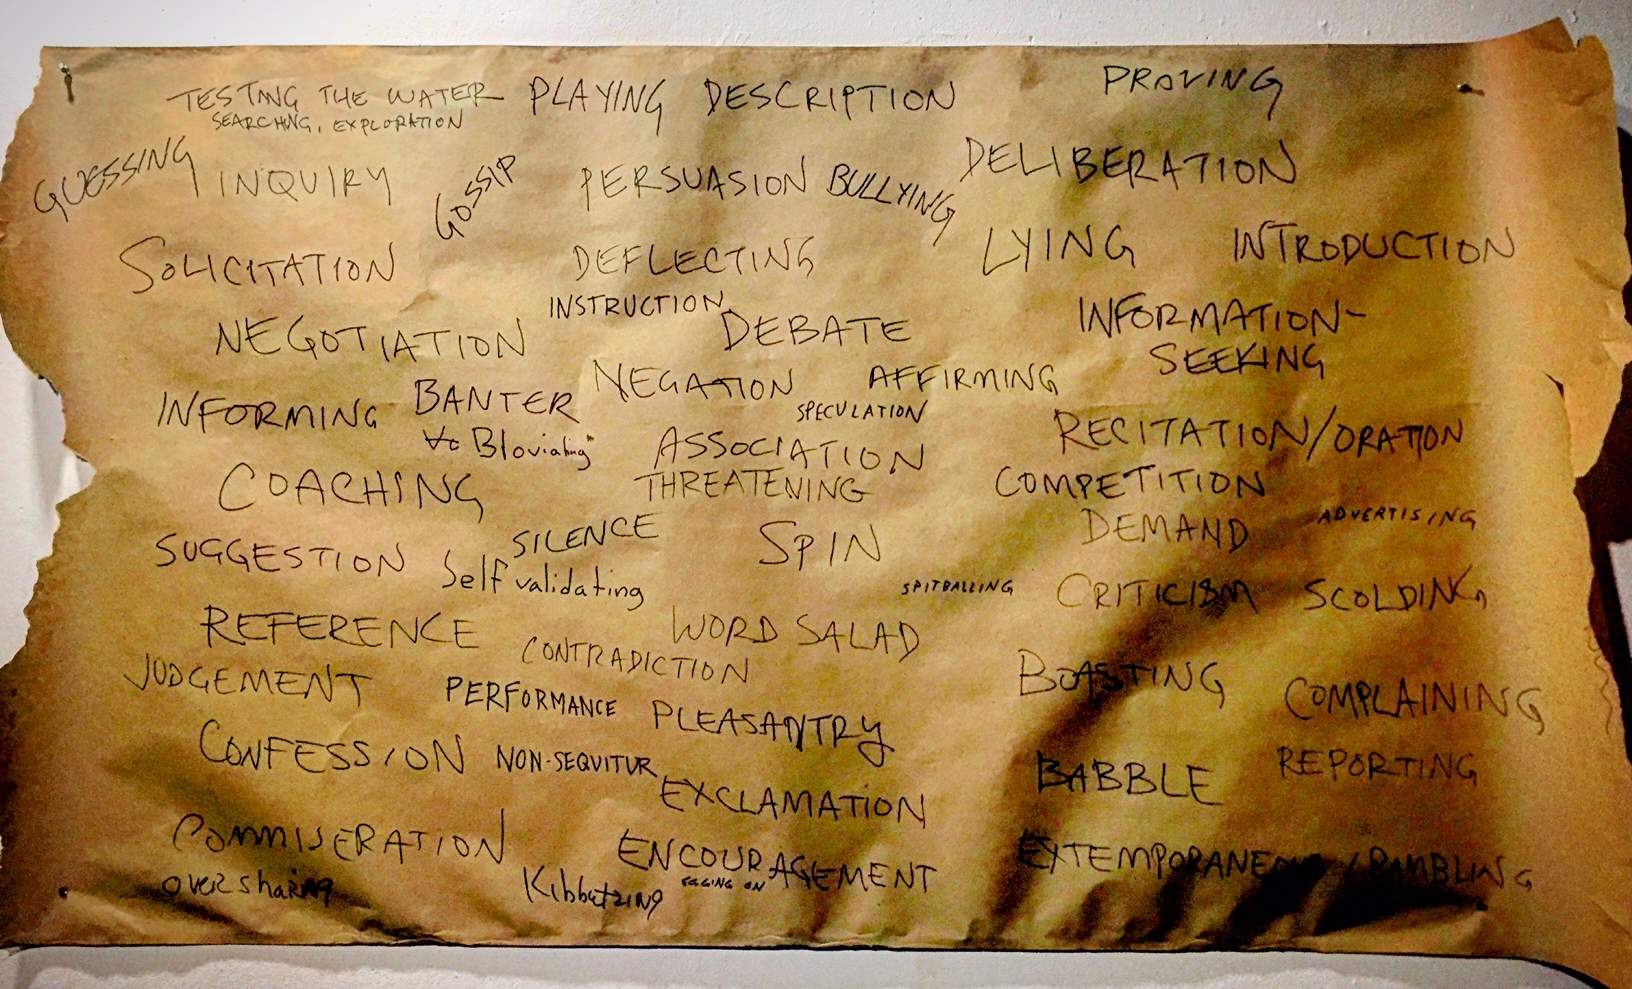 TESTING THE WATER PLAYING DESCRIPTION PROVING
SEARCHING, EXPLORATION
GUESSING INQUIRY GOSSIP PERSUASION BULLYING DELIBERATION
SOLICITATION DEFLECTING LYING INTRODUCTION
INSTRUCTION
NEGOTIATION DEBATE INFORMATION-
SEEKING
INFORMING BANTER NEGATION AFFIRMING
SPECULATION
Bloviating ASSOCIATION RECITATION/ORATION
COACHING THREATENING COMPETITION
SILENCE SPIN DEMAND ADVERTISING
SUGGESTION Self validating SPITBALLING CRITICISM SCOLDING
REFERENCE CONTRADICTION WORD SALAD
JUDGEMENT PERFORMANCE PLEASANTRY BOASTING COMPLAINING
CONFESSION NON-SEQUITUR BABBLE REPORTING
EXCLAMATION
COMMISERATION ENCOURAGEMENT EXTEMPORANEOUS/RAMBLING
over sharing Kibbetzing EGGING ON